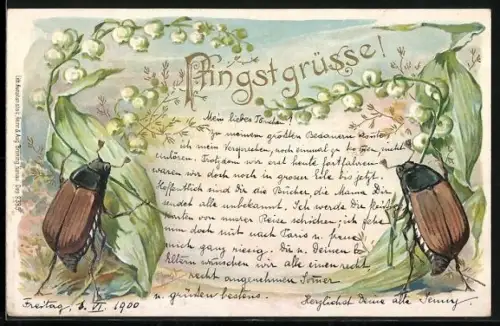 Pfingstgrüsse!
Mein lieber
Zu meinem größten Bedauern
ich mein Versprechen, noch einmal zu nicht
einlösen. Trotzdem wir erst heute fortfahren
waren wir doch noch in grosser Eile bis jetzt.
Hoffentlich sind Dir die Bücher, die Mama Dir
sendet alle unbekannt. Ich werde Dir
karten von unsrer Reise schicken; ich gehe
nun doch mit nach Paris u. freue
mich ganz riesig. Dir u. Deinen l.
Eltern wünschen wir alle einen recht
recht angenehmen Sommer
u. grüssen bestens. Herzlichst Deine alte Jenny.
Freitag, 1. VI. 1900